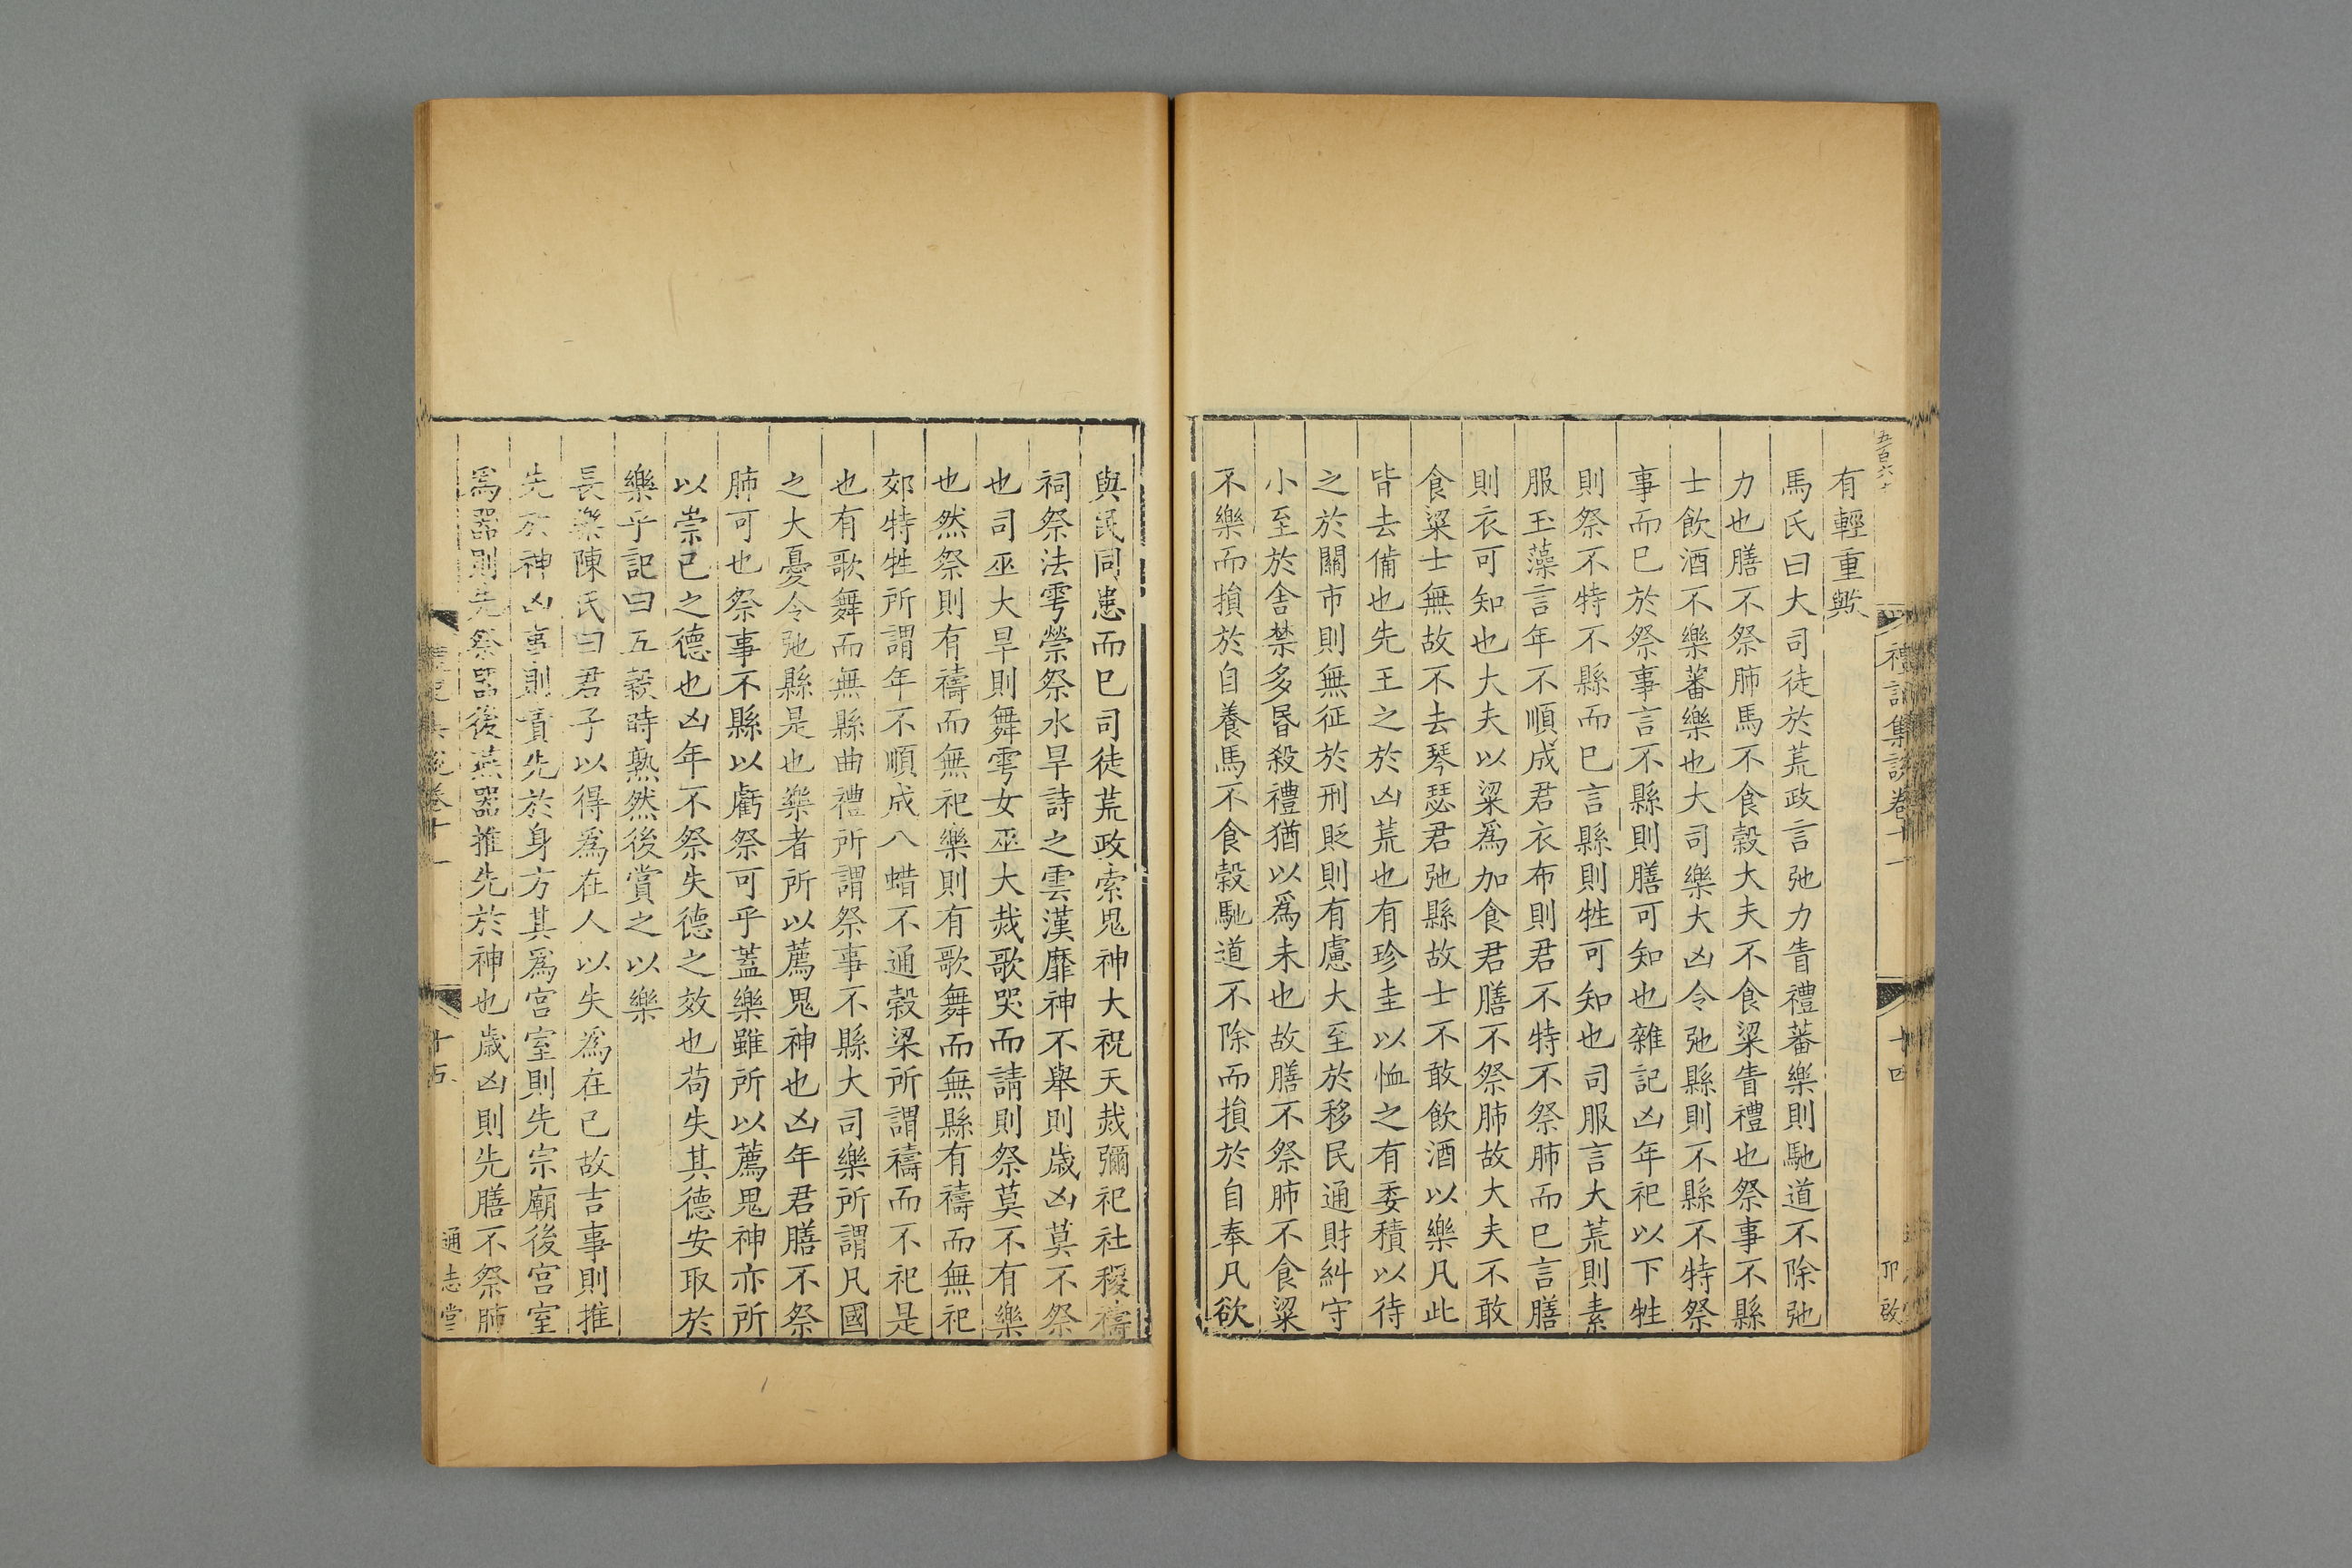 五百六十
禮記集說卷十一
十四
有輕重歟
馬氏曰大司徒於荒政言弛力眚禮蕃樂則馳道不除弛
力也膳不祭肺馬不食穀大夫不食粱眚禮也祭事不縣
士飲酒不樂蕃樂也大司樂大凶令弛縣則不縣不特祭
事而巳於祭事言不縣則膳可知也雜記凶年祀以下牲
則祭不特不縣而巳言縣則牲可知也司服言大荒則素
服玉藻言年不順成君衣布則君不特不祭肺而巳言膳
則衣可知也大夫以粱爲加食君膳不祭肺故大夫不敢
食粱士無故不去琴瑟君弛縣故士不敢飲酒以樂凡此
皆去備也先王之於凶荒也有珍圭以恤之有委積以待
之於關市則無征於刑貶則有慮大至於移民通財糾守
小至於舍禁多昬殺禮猶以爲未也故膳不祭肺不食粱
不樂而損於自養馬不食穀馳道不除而損於自奉凡欲
與民同患而巳司徒荒政索鬼神大祝天烖彌祀社稷禱
祠祭法雩禜祭水旱詩之雲漢靡神不舉則歲凶莫不祭
也司巫大旱則舞雩女巫大烖歌哭而請則祭莫不有樂
也然祭則有禱而無祀樂則有歌舞而無縣有禱而無祀
郊特牲所謂年不順成八蜡不通穀梁所謂禱而不祀是
也有歌舞而無縣曲禮所謂祭事不縣大司樂所謂凡國
之大憂令弛縣是也樂者所以薦鬼神也凶年君膳不祭
肺可也祭事不縣以虧祭可乎蓋樂雖所以薦鬼神亦所
以崇已之德也凶年不祭失德之效也茍失其德安取於
樂乎記曰五穀時熟然後賞之以樂
長樂陳氏曰君子以得爲在人以失爲在已故吉事則推
先於神凶事則責先於身方其爲宮室則先宗廟後宮室
爲器則先祭器後燕器推先於神也歲凶則先膳不祭肺
禮記集說卷十一
十五
通志堂